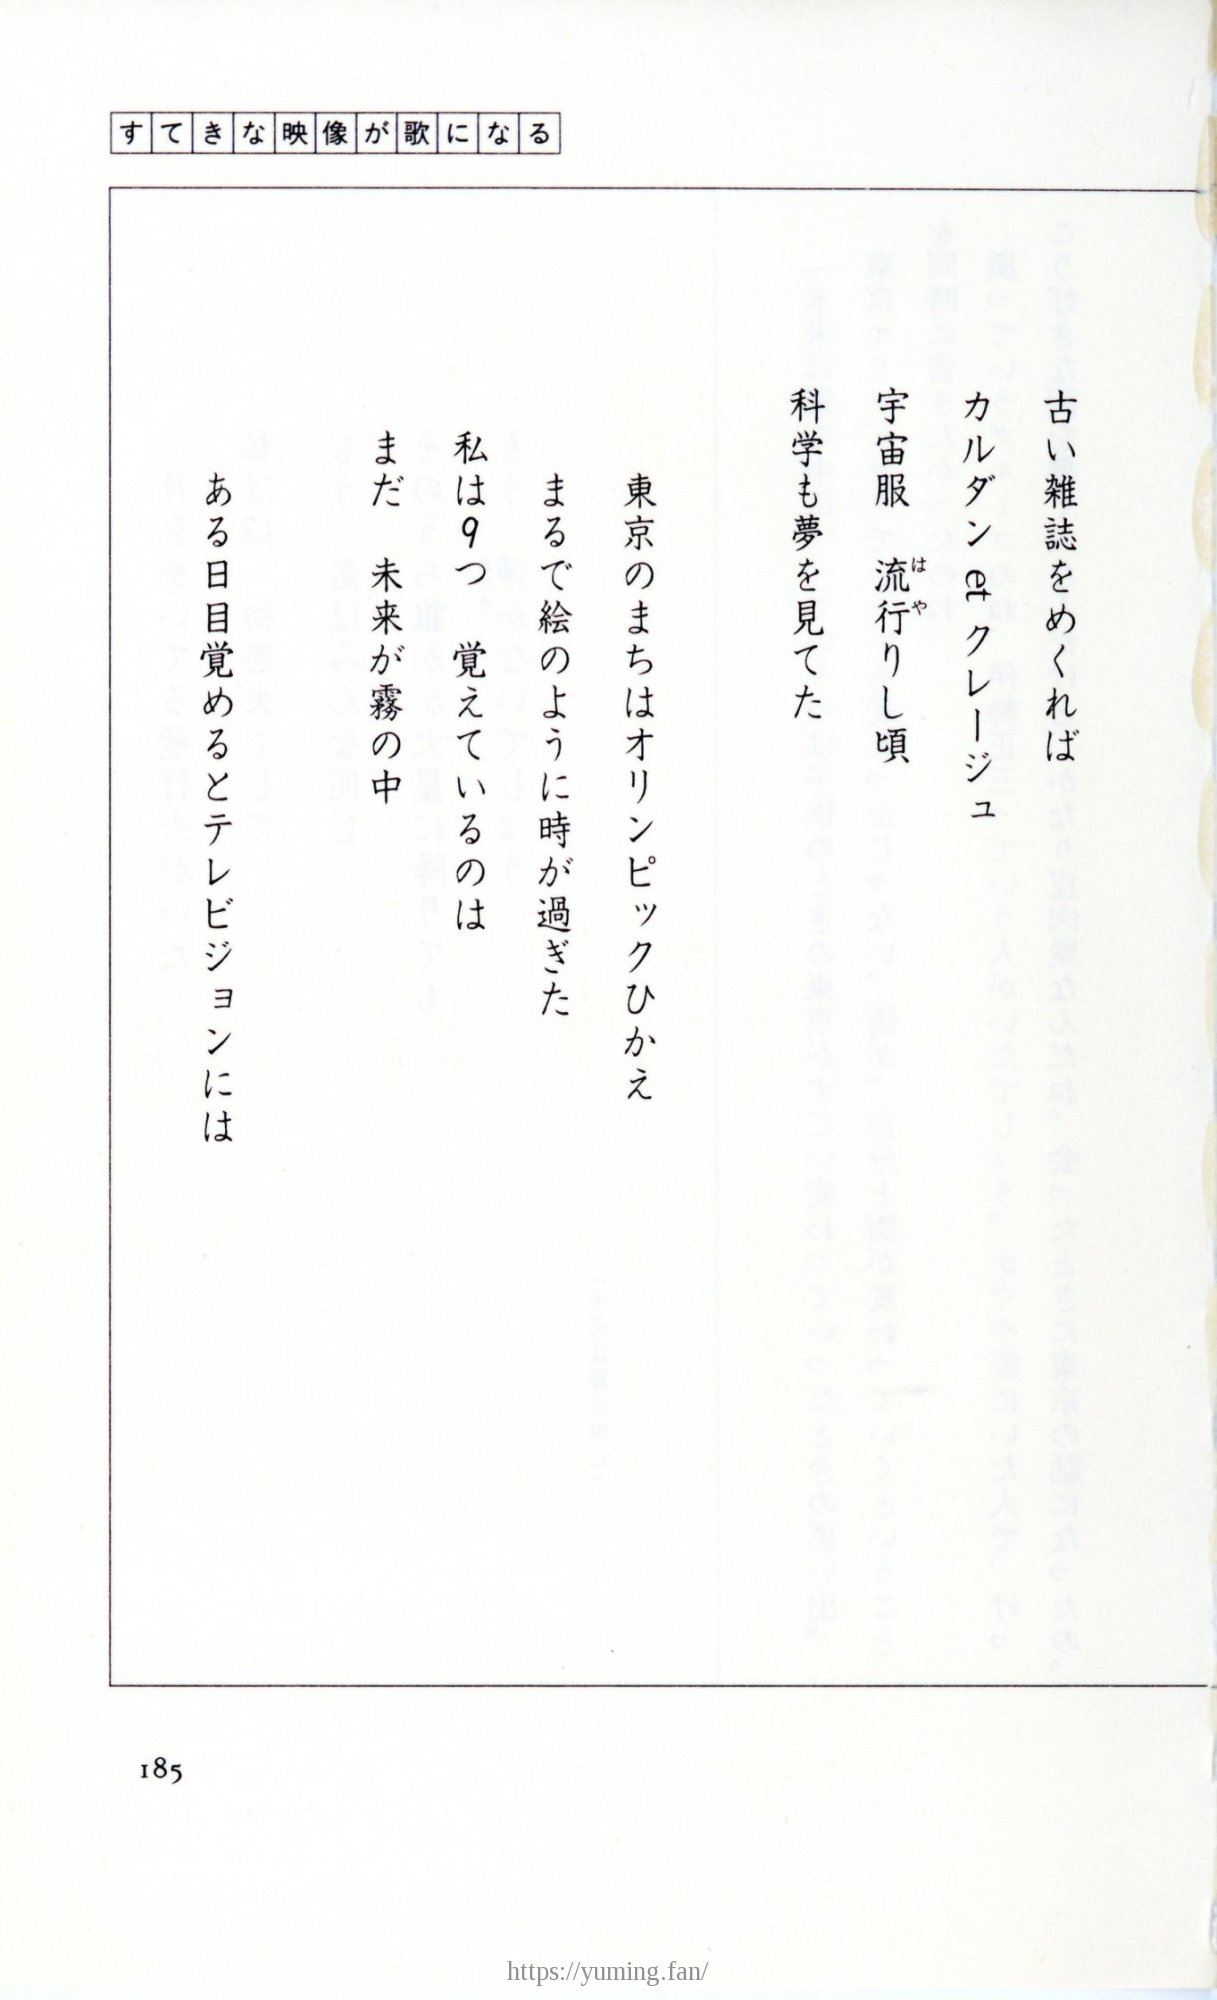 すてきな映像が歌になる
古い雑誌をめくれば
カルダン et クレージュ
宇宙服　流行りし頃
はや
科学も夢を見てた
東京のまちはオリンピックひかえ
まるで絵のように時が過ぎた
私は9つ　覚えているのは
まだ　未来が霧の中
ある日目覚めるとテレビジョンには
185
https://yuming.fan/